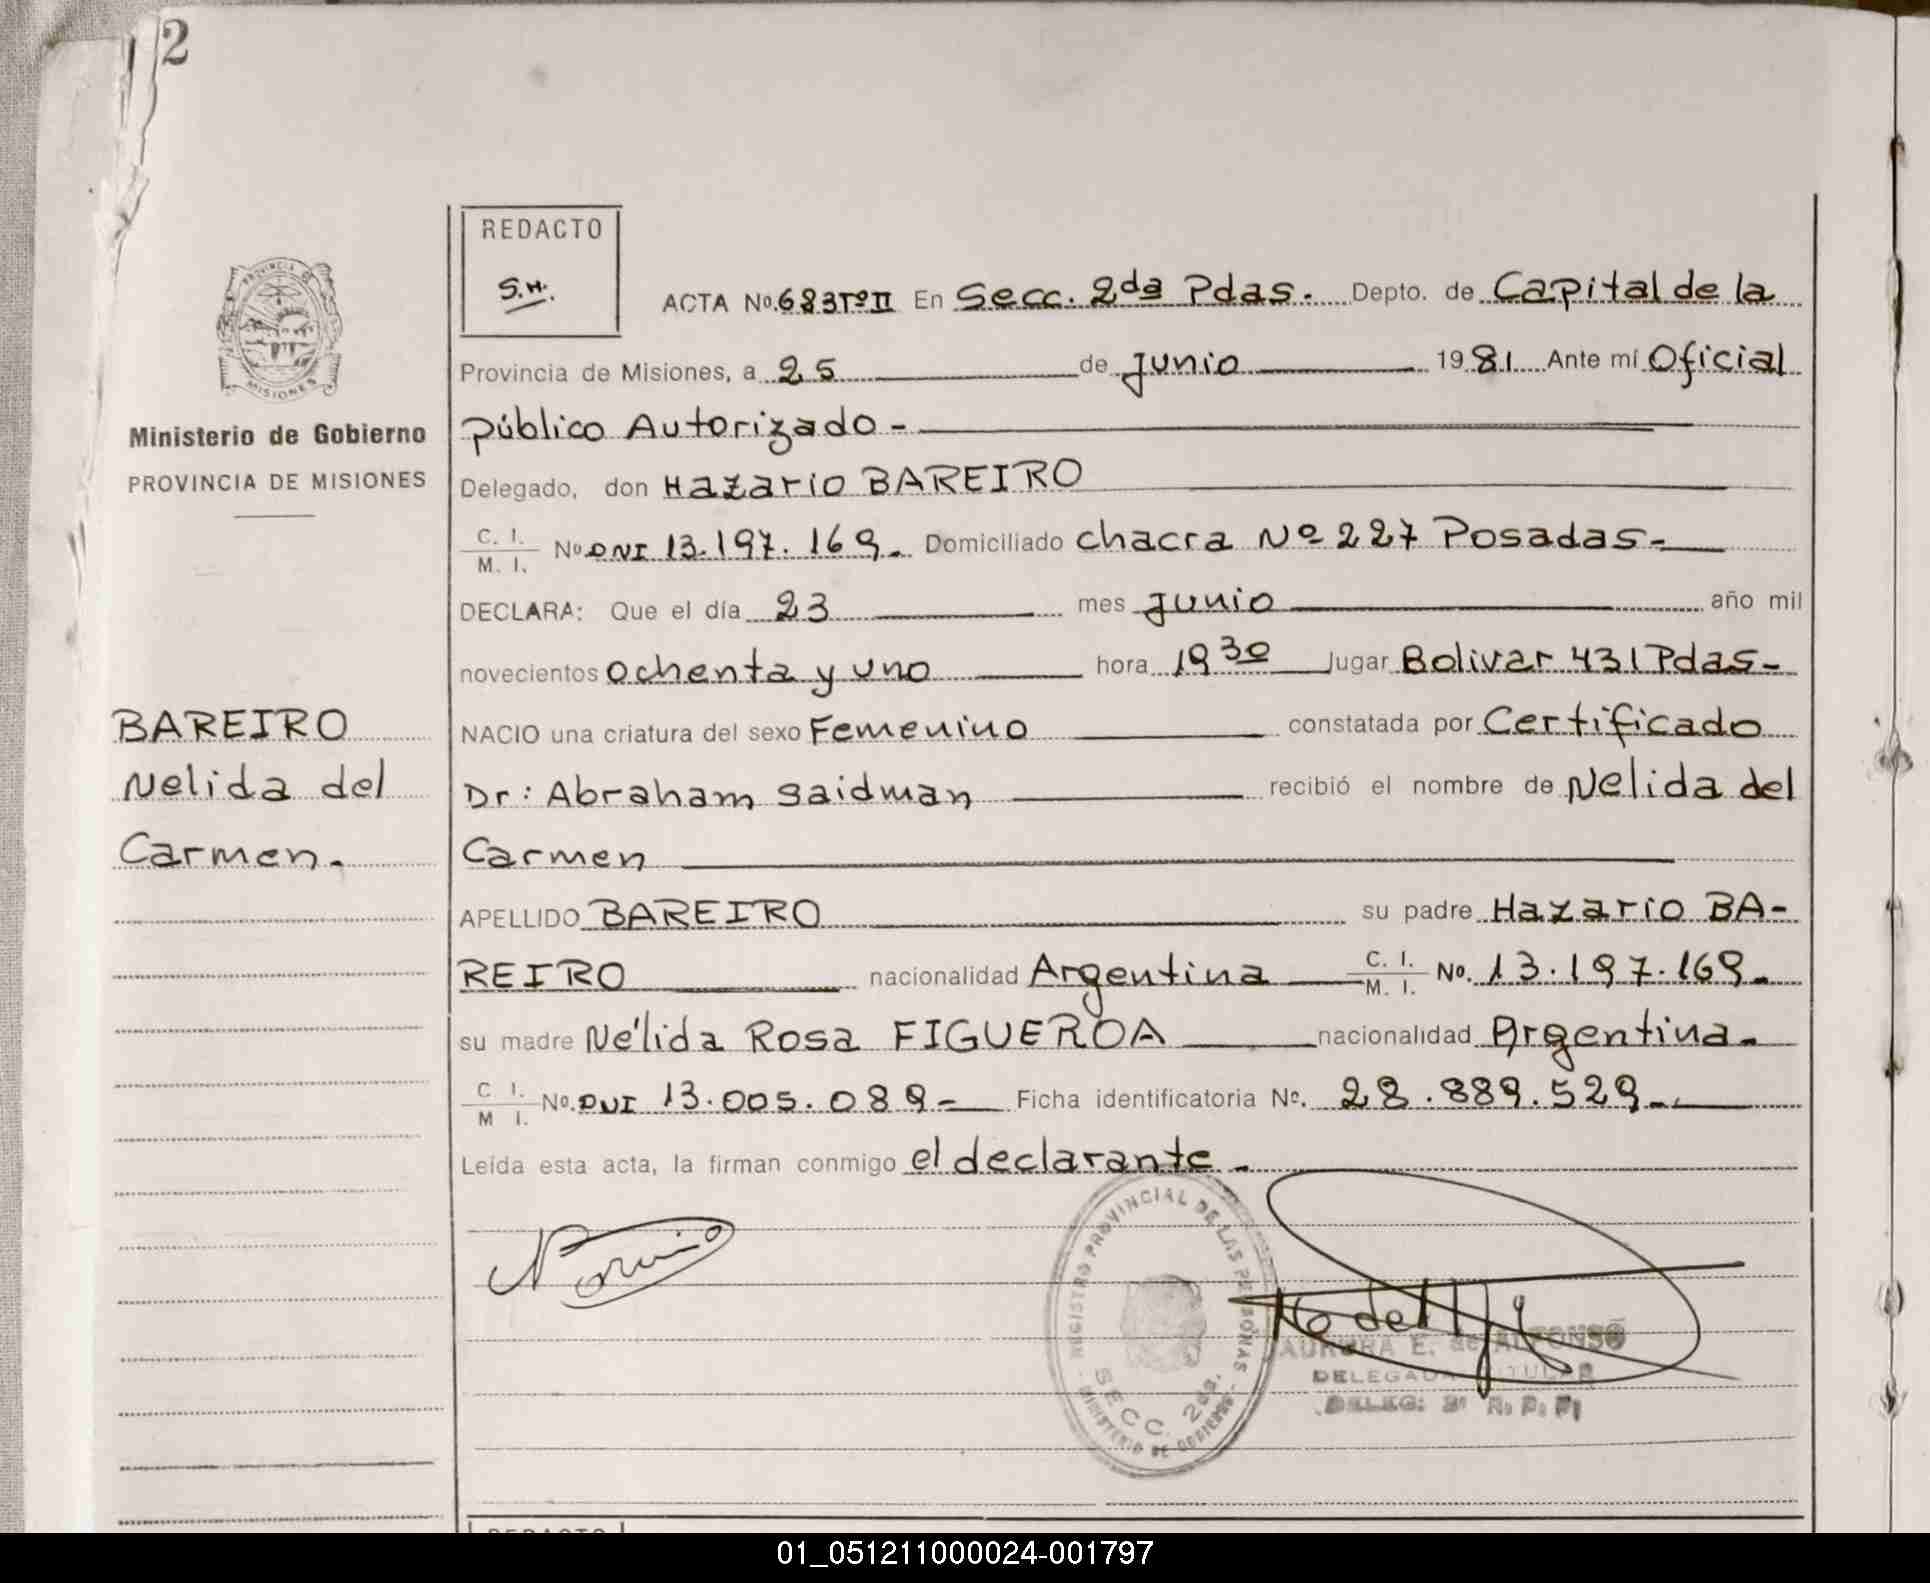 2
REDACTO
S.H.
PROVINCIA DE
MISIONES
Ministerio de Gobierno
PROVINCIA DE MISIONES
BAREIRO
Nelida del
Carmen.
ACTA No. 683 Tº II En Secc. 2da Pdas. Depto. de Capital de la
Provincia de Misiones, a 25 de junio 1981 Ante mí Oficial
público Autorizado -
Delegado, don Hazario BAREIRO
C. I.
M. I. No DNI 13.197.169. Domiciliado chacra Nº 227 Posadas-
DECLARA: Que el día 23 mes junio año mil
novecientos ochenta y uno hora 19 30 lugar Bolivar 431 Pdas-
NACIO una criatura del sexo Femenino constatada por Certificado
Dr: Abraham Saidman recibió el nombre de Nelida del
Carmen
APELLIDO BAREIRO su padre Hazario BA-
REIRO nacionalidad Argentina C. I.
M. I. No. 13.197.169.
su madre Nélida Rosa FIGUEROA nacionalidad Argentina.
C I.
M I. No. DNI 13.005.089- Ficha identificatoria No. 28.889.529-
Leída esta acta, la firman conmigo el declarante.
REGISTRO PROVINCIAL DE LAS PERSONAS
SECC. 2da.
MINISTERIO DE GOBIERNO
AURORA E. de ALFONSO
DELEGADA TITULAR
DELEG: 2ª R. P. P.
REDACTO
01_051211000024-001797